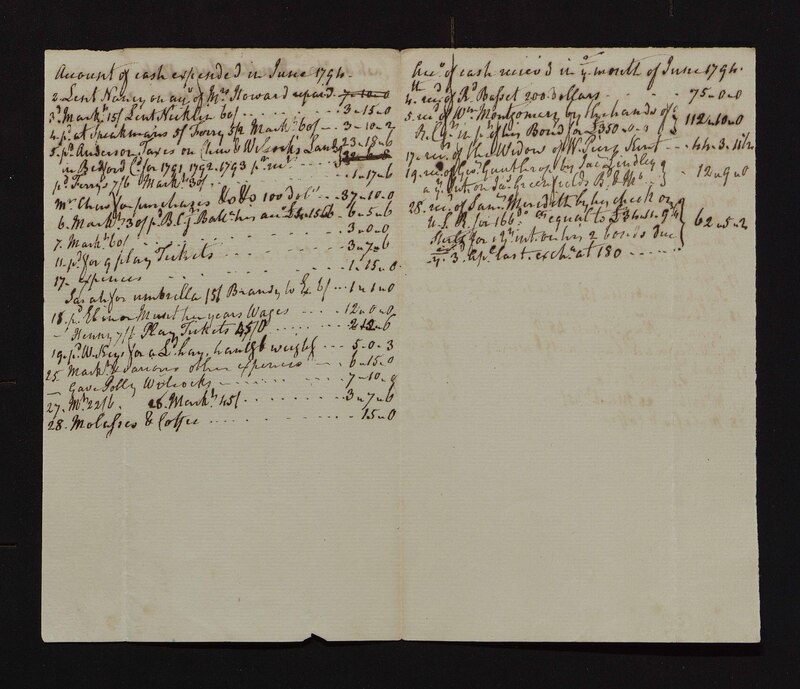 Amount of cash expended in June 1794.
2. Lent Nancy on acct of Mrs Howard repaid 7-10-0
3d Markt 15/ Lent Nicklin 60/ 3-15-0
4. pd at Speckmans 5/ Ferry 5/2 Markt 60/ 3-10-2
5. pd Anderson Taxes on Chew & Wilcocks Land 23-18-6
in Bedford Co for 1791, 1792, 1793 pr rect
pd Ferrys 7/6 Markt 30/ 1-17-6
Mr Chew for purchases &c &c 100 dols 37-10-0
6. Markt 30/ pd B. C. J. Ball his acct £4-15-6 6-5-6
7. Markt 60/ 3-0-0
11. pd for 9 play Tickets 3-7-6
17. expences 1-15-0
Sarah for umbrella 15/ Brandy to Ex 6/ 1-1-0
18. pd Ebenor Munt her years Wages 12-0-0
Henry 7/6 Play Tickets 45/0 2-12-6
19. pd W. Keys for a Ld hay, haulg & weighg 5-0-3
25 Markt & various other expences 6-15-0
Gave Polly Wilcocks 7-10-9
27. Mkt 22/6. 28. Markt 45/ 3-7-6
28. Molasses & Coffee 15-0
Acct of cash recieved in ye month of June 1794.
4. recd of Rd Basset 200 dollars 75-0-0
5. recd of Wm Montgomery by the hands of
R. C. in pt of his Bond for £350-0-0 112-10-0
17. recd of the Widow of W. Perry Rent 44-3-11½
19. recd of Geo. Gunthrop by Jas Lindley
a yrs Int on Jas Greenfields Bd & Me 12-9-0
28. recd of Saml Meredith by his check on
U. S. B. for 166 equal to £34-11-9½
Sterlg for 12 ms int. on his 2 bonds due
ye 3d Apl last. exche at 180 62-5-2